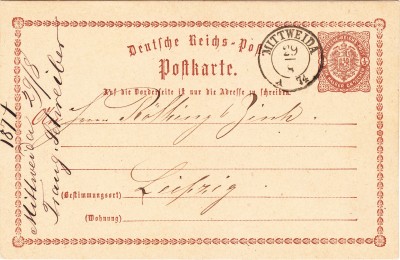 Deutsche Reichs-Post
Postkarte.
MITTWEIDA
29
8
74
Auf die Vorderseite ist nur die Adresse zu schreiben.
An Herrn
Leipzig
(Bestimmungsort)
(Wohnung)
Mittweida 29/8
1874
Schreiber